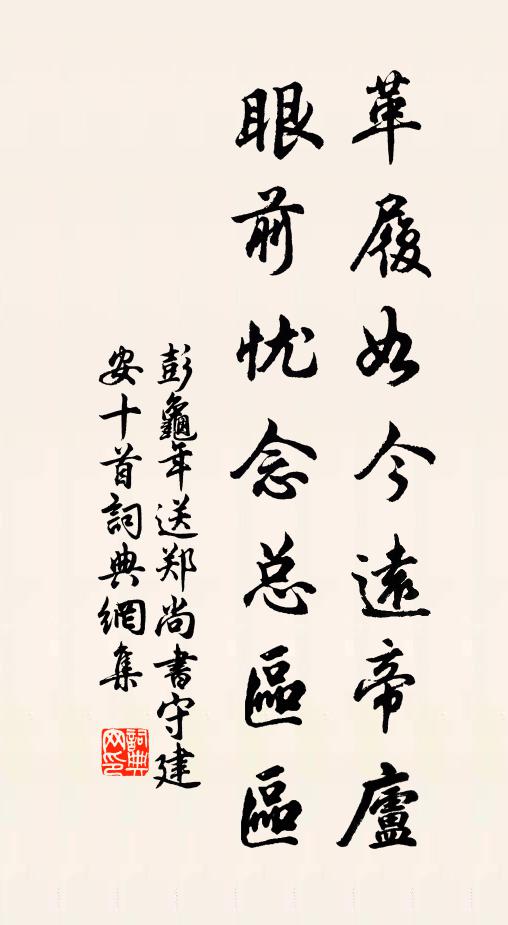 革履如今遠帝廬
眼前忧念总區區
彭龜年送郑尚書守建
安十首詞典網集
詞典
网印